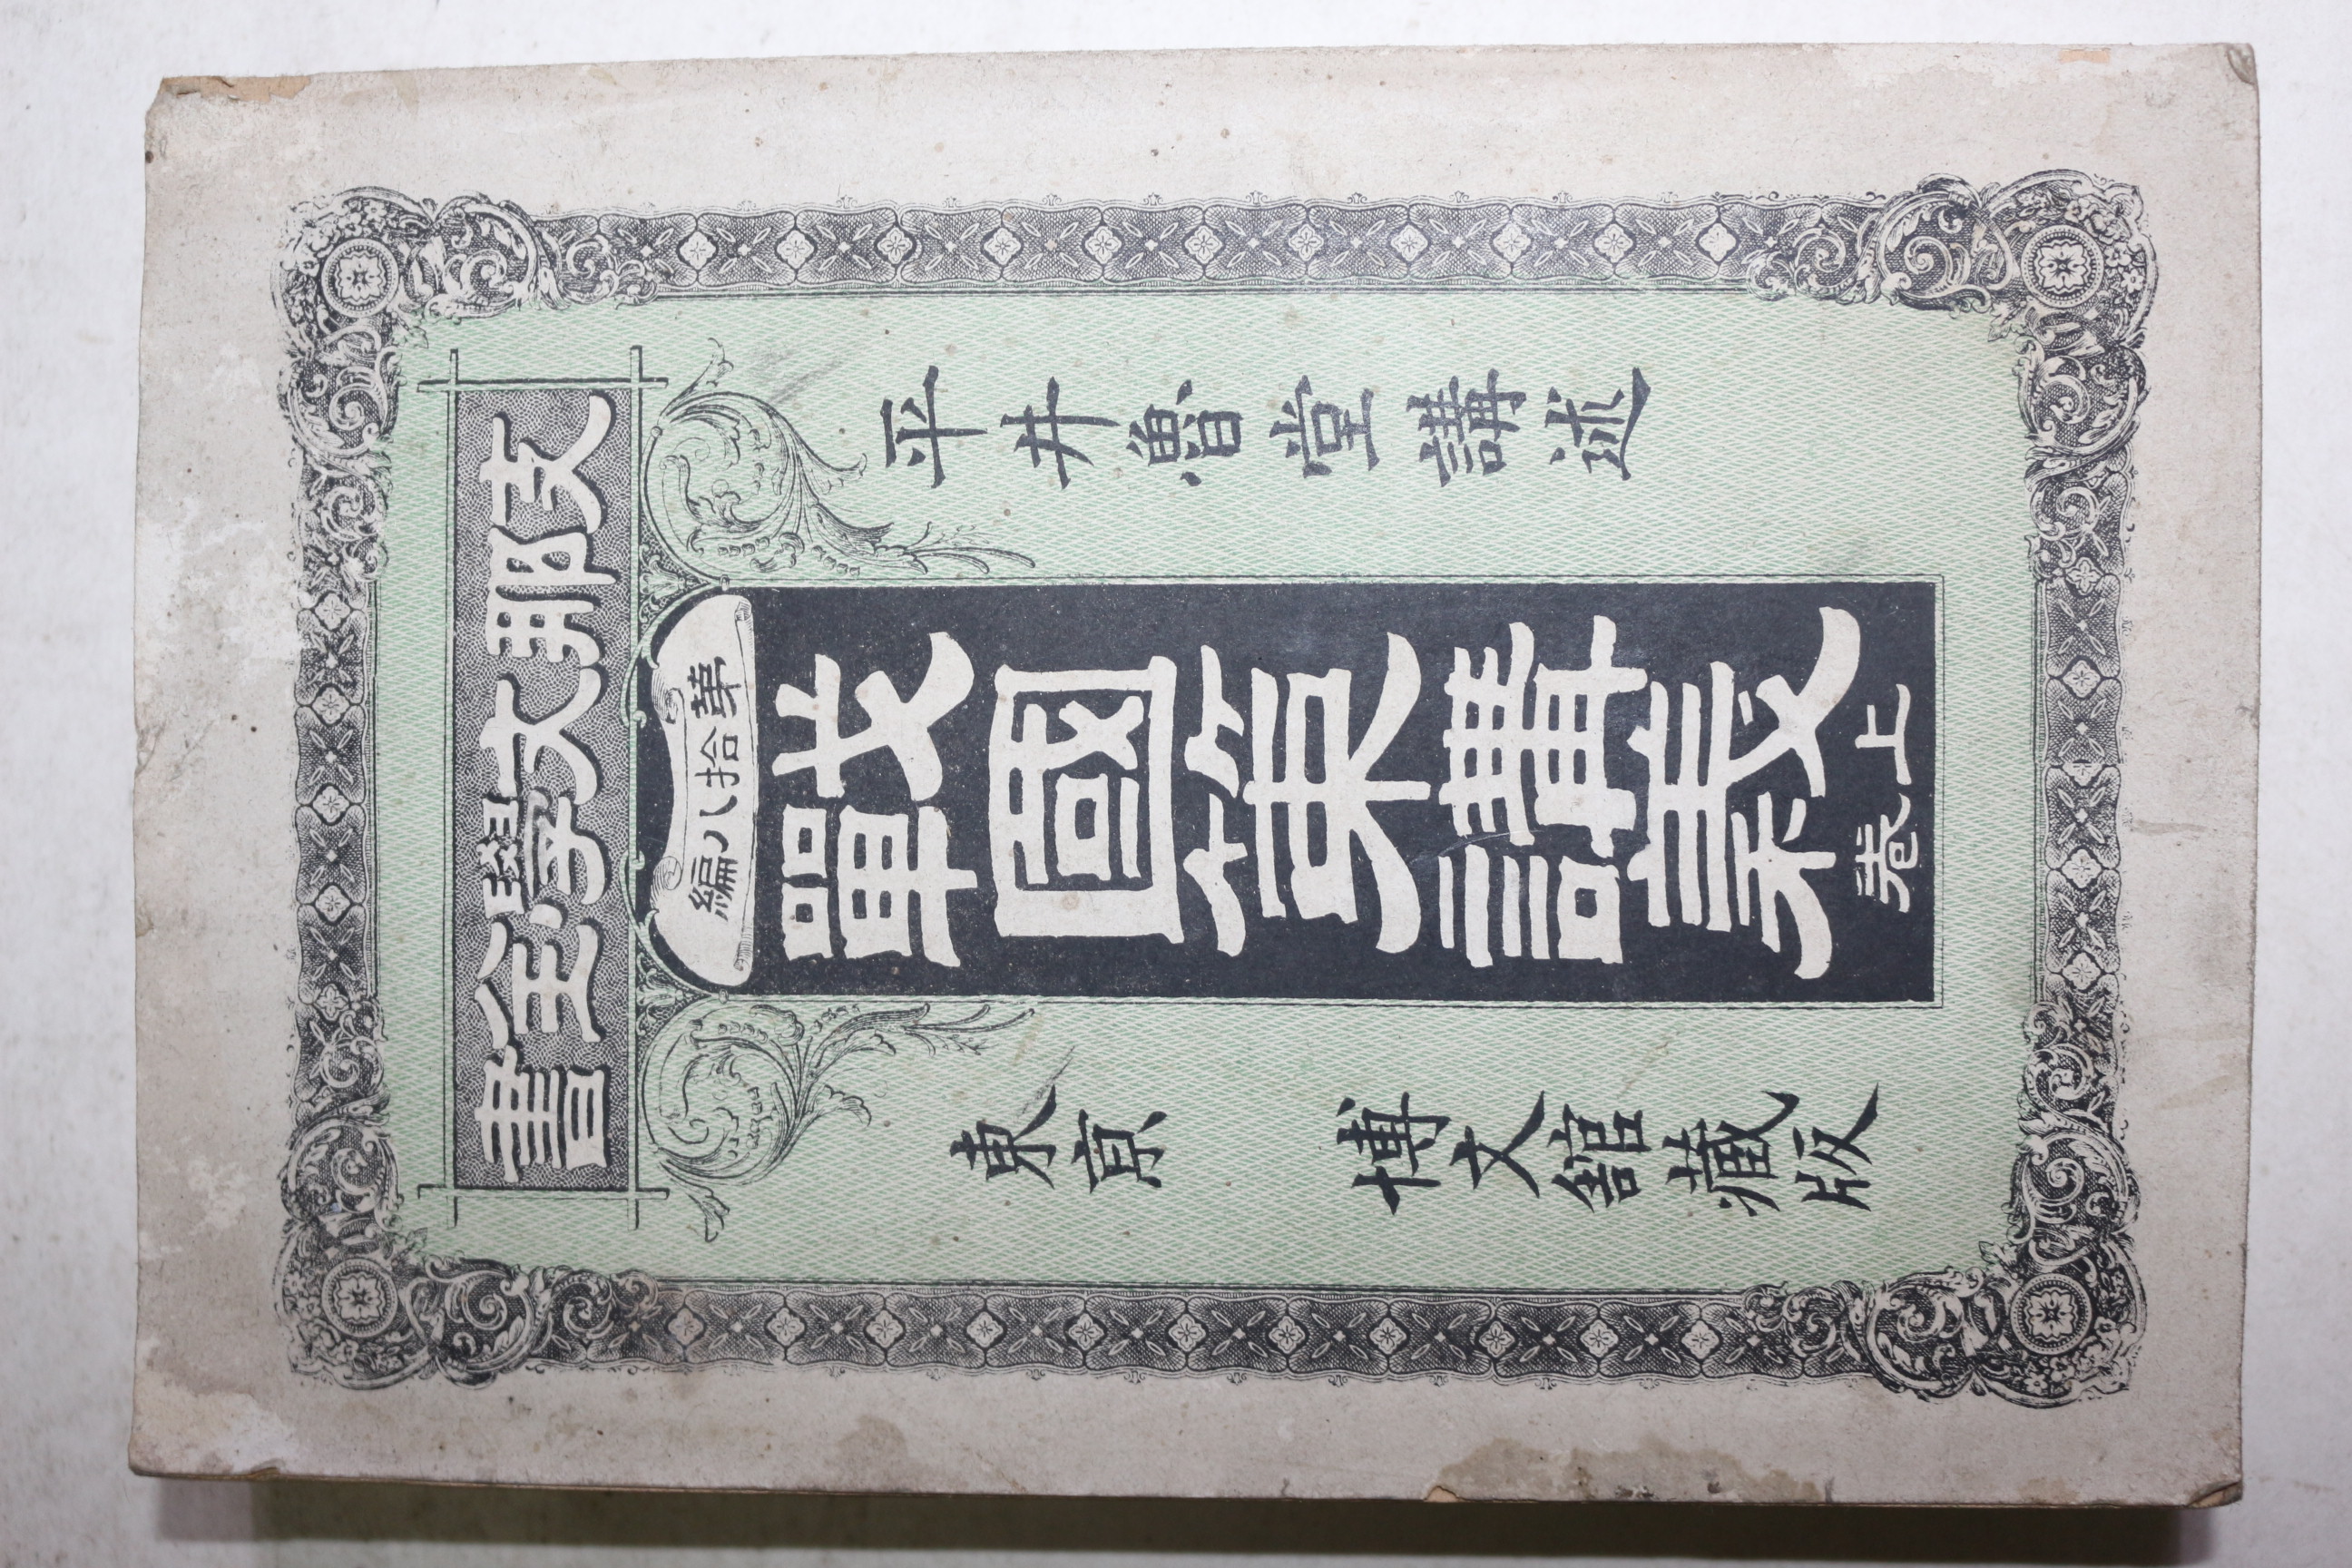 支那文學全書
第拾八編
平井魯堂講述
戰國策講義
上卷
東京 博文館藏版